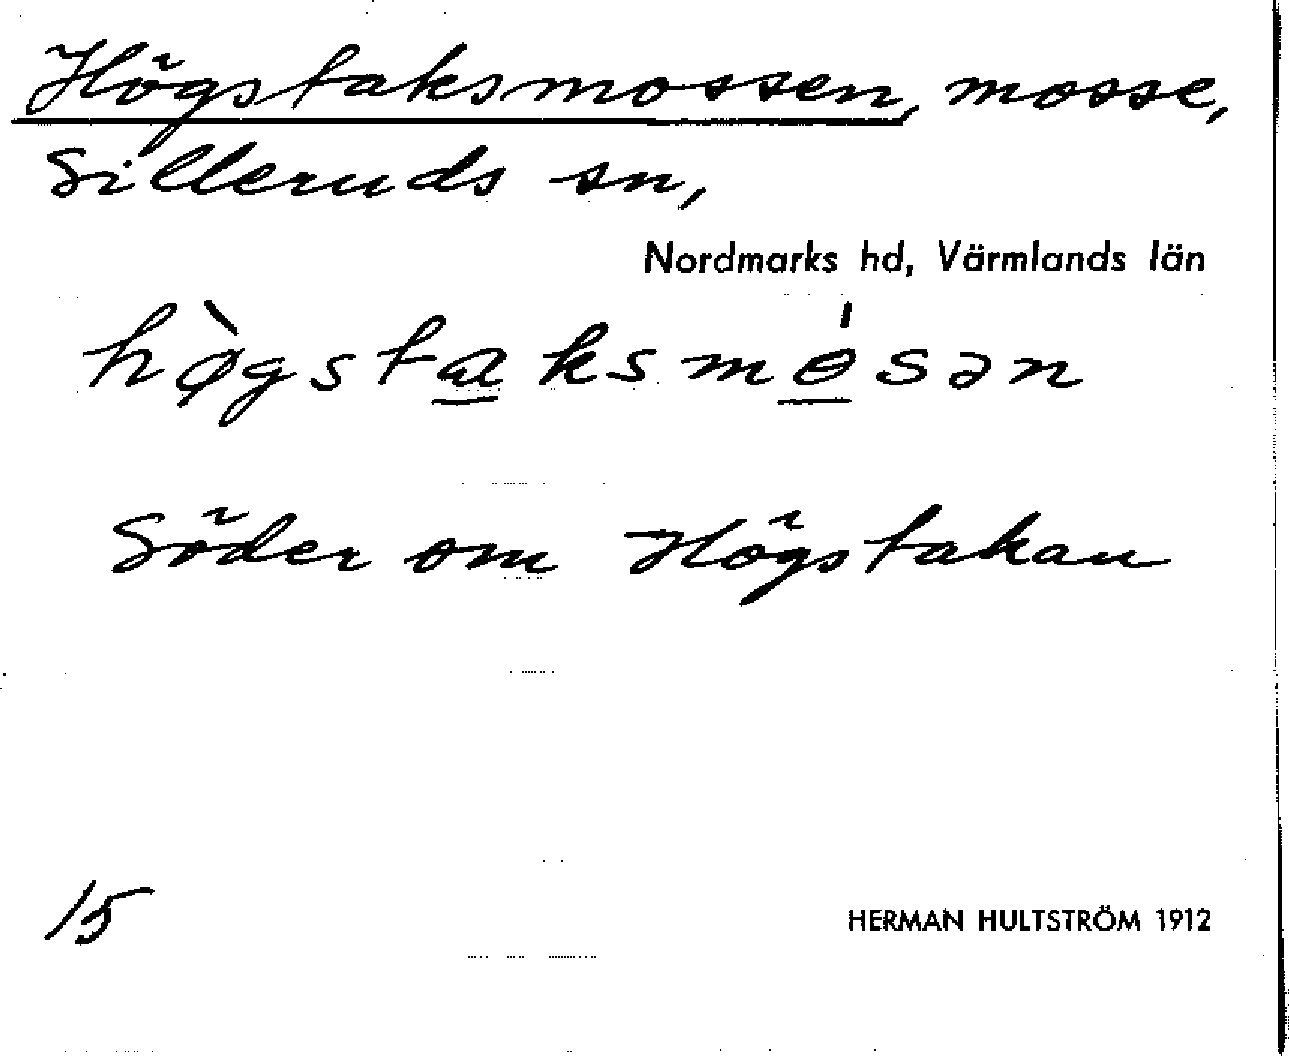 Högstaksmossen, mosse,
Silleruds sn,
Nordmarks hd, Värmlands län
hø̀gsta̲ksmɵ̲́sən
Söder om Högstakan
15
HERMAN HULTSTRÖM 1912